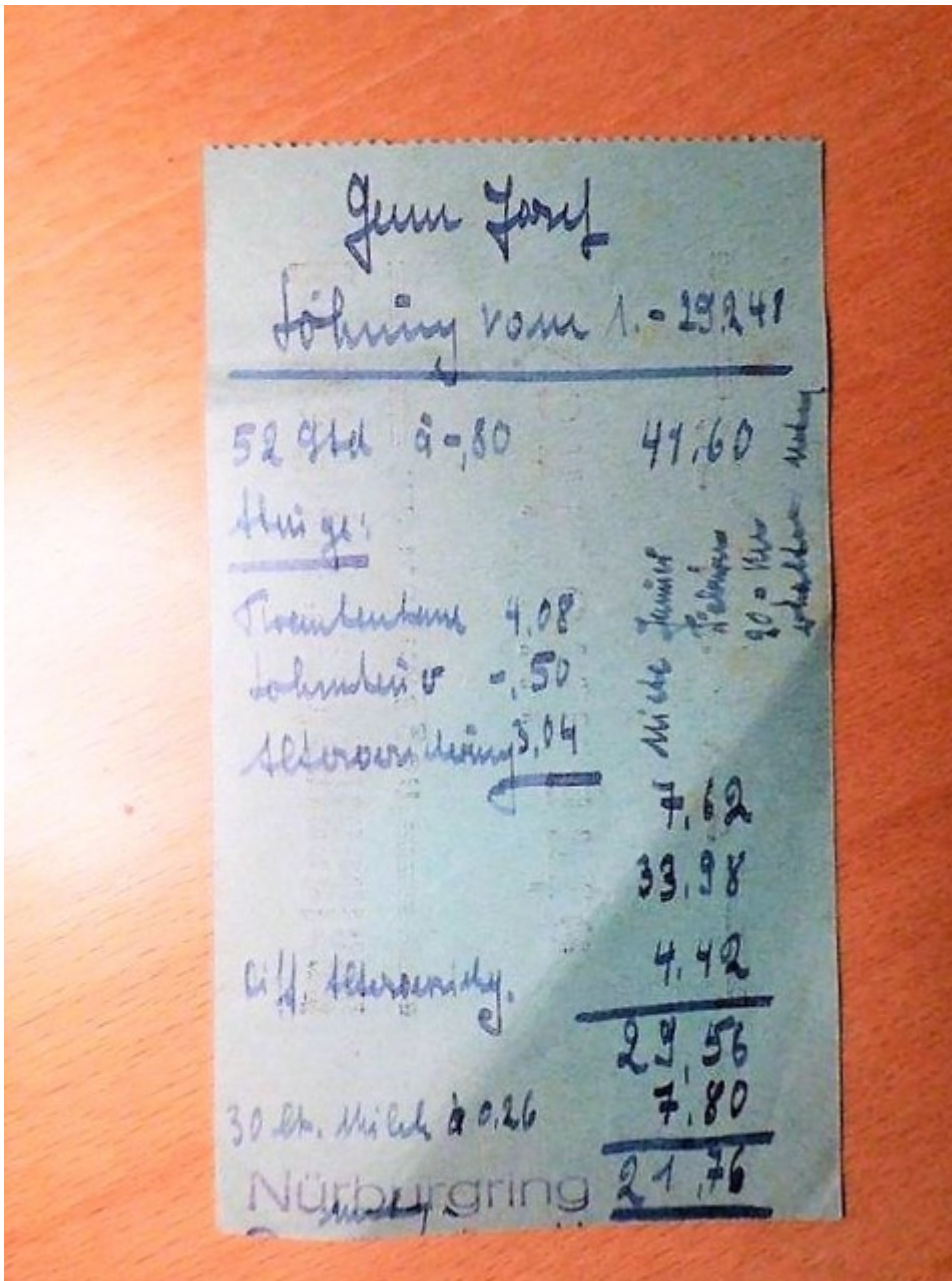 Josef
Löhnung vom 1.-29.2.48
52 Std à -,80 41,60
Abzüge:
Krankenkasse 4,08
Lohnsteuer -,50
Altersversicherung 3,04
7,62
33,98
Diff. Altersversichg. 4,42
29,56
30 Ltr. Milch à 0.26 7,80
21,76
Nürburgring
Miete Januar
Februar